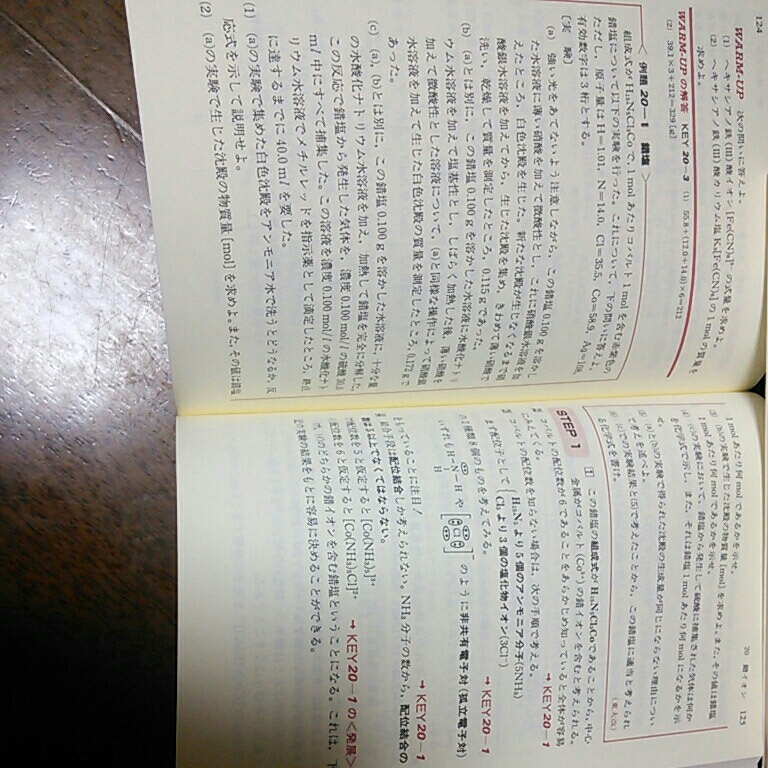 124
WARM-UP 次の問いに答えよ。
(1) ヘキサシアノ鉄(III)酸イオン[Fe(CN)₆]³⁻の式量を求めよ。
(2) ヘキサシアノ鉄(III)酸カリウム塩 K₃[Fe(CN)₆] の1molの質量を
求めよ。
WARM-UPの解答 KEY 20-3 (1) 55.8+(12.0+14.0)×6=212
(2) 39.1×3+212=329(g)
< 例題 20-1 錯塩 >
組成式が H₁₅N₅Cl₃Co で, 1molあたりコバルト1molを含む赤紫色の
錯塩について以下の実験を行った。これについて, 下の問いに答えよ。
ただし, 原子量は H=1.01, N=14.0, Cl=35.5, Co=58.9, Ag=108,
有効数字は3桁とする。
〔実 験〕
(a) 強い光をあてないよう注意しながら, この錯塩 0.100g を溶かし
た水溶液に薄い硝酸を加えて微酸性とし, これに硝酸銀水溶液を加
えたところ, 白色沈殿を生じた。新たな沈殿が生じなくなるまで硝
酸銀水溶液を加えてから, 生じた沈殿を集め, きわめて薄い硝酸で
洗い, 乾燥して質量を測定したところ, 0.115g であった。
(b) (a)とは別に, この錯塩 0.100g を溶かした水溶液に水酸化ナトリ
ウム水溶液を加えて塩基性とし, しばらく加熱した後, 薄い硝酸を
加えて微酸性とした溶液について, (a)と同様な操作によって硝酸銀
水溶液を加えて生じた白色沈殿の質量を測定したところ, 0.172g で
あった。
(c) (a), (b)とは別に, この錯塩 0.100g を溶かした水溶液に, 十分な量
の水酸化ナトリウム水溶液を加え, 加熱して錯塩を完全に分解した。
この反応で錯塩から発生した気体を, 濃度 0.100mol/l の硫酸 30.0
ml 中にすべて捕集した。この溶液を濃度 0.100mol/l の水酸化ナト
リウム水溶液でメチルレッドを指示薬として滴定したところ, 終点
に達するまでに 40.0ml を要した。
(1) (a)の実験で集めた白色沈殿をアンモニア水で洗うとどうなるか, 反
応式を示して説明せよ。
(2) (a)の実験で生じた沈殿の物質量[mol]を求めよ。また, その値は錯塩
20 錯イオン 125
1mol あたり何 mol であるかを示せ。
(3) (b)の実験で生じた沈殿の物質量[mol]を求めよ。また, その値は錯塩
1mol あたり何 mol であるかを示せ。
(4) (c)の実験において, 錯塩から発生して硫酸に捕集された気体は何か
を化学式で示し, また, それは錯塩 1mol あたり何 mol になるかを示
(5) (a)と(b)の実験で得られた沈殿の生成量が同じにならない理由につい
て考えを述べよ。
(6) (c)での実験結果と(5)で考えたことから, この錯塩に適当と考えられ
る化学式を書け。 (東大改)
STEP 1
1 この錯塩の組成式が H₁₅N₅Cl₃Co であることから, 中心
金属がコバルト(Co³⁺)の錯イオンを含むと考えられる。
コバルトの配位数が6であることをあらかじめ知っていると全体が容易
→ KEY 20-1
コバルトの配位数を知らない場合は, 次の手順で考える。
まず配位子として { H₁₅N₅ より 5個のアンモニア分子(5NH₃)
Cl₃ より 3個の塩化物イオン(3Cl⁻)
の2種類8個のものを考えてみる。 → KEY 20-1
いずれも H-N-H や [Cl]⁻ のように非共有電子対(孤立電子対)
H
をもっていることに注目! → KEY 20-1
結合手段は配位結合しか考えられない。NH₃ 分子の数から, 配位結合の
数は5以上でなくてはならない。
配位数を5と仮定すると [Co(NH₃)₅]³⁺
配位数を6と仮定すると [Co(NH₃)₅Cl]²⁺ → KEY 20-1の〈発展〉
のどちらかの錯イオンを含む錯塩ということになる。これは, 下
の実験の結果をもとに容易に決めることができる。